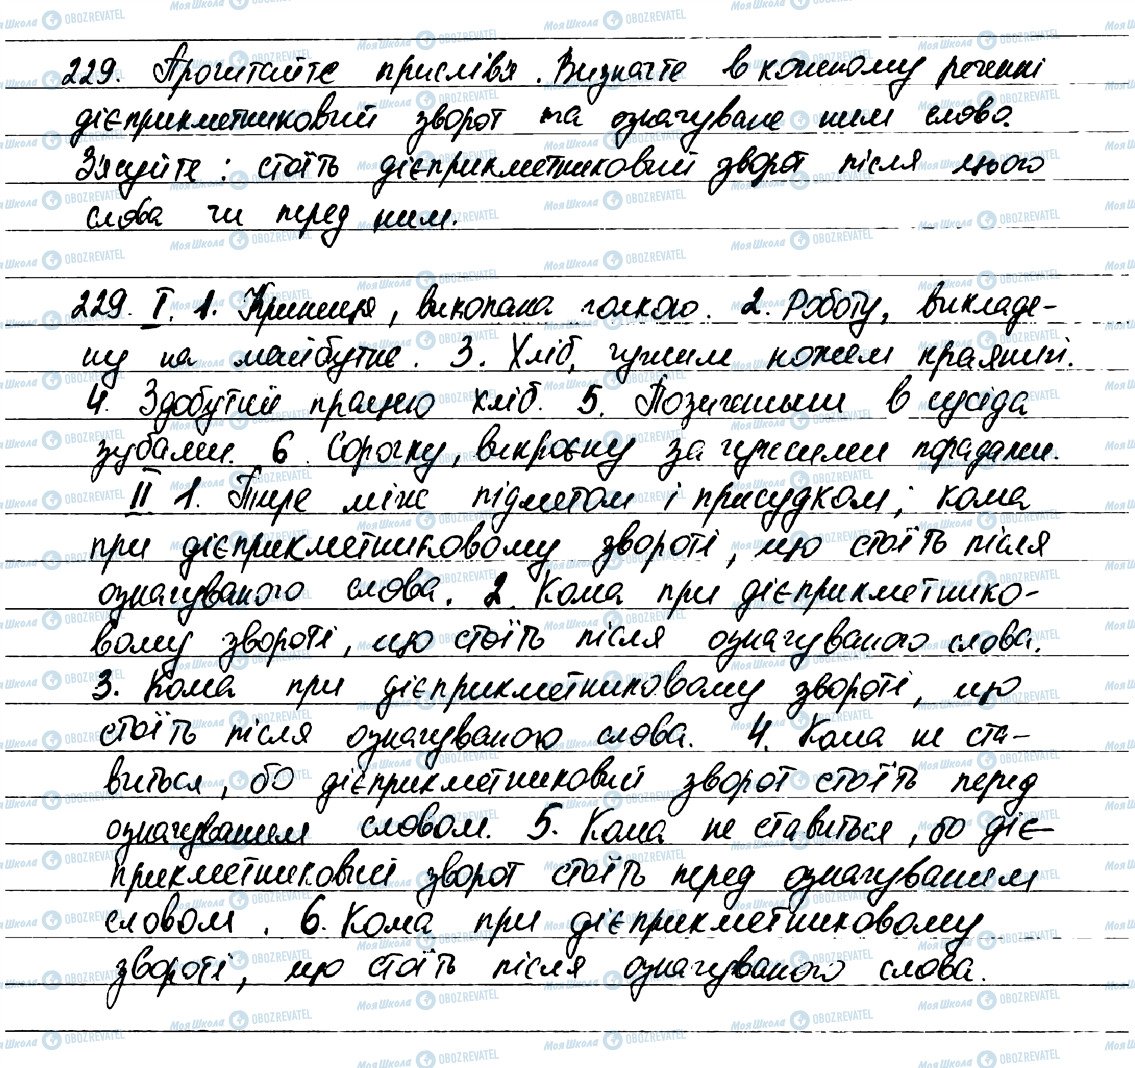 229. Прочитайте прислів'я. Визначте в кожному реченні
дієприкметниковий зворот та означуване ним слово.
З'ясуйте: стоїть дієприкметниковий зворот після цього
слова чи перед ним.
229. I. 1. Криниця, викопана голкою. 2. Роботу, викладе-
ну на майбутнє. 3. Хліб, чужим ножем краяний.
4. Здобутий працею хліб. 5. Позиченими в сусіда
зубами. 6. Сорочку, викроєну за чужими порадами.
II 1. Тире між підметом і присудком; кома
при дієприкметниковому звороті, що стоїть після
означуваного слова. 2. Кома при дієприкметнико-
вому звороті, що стоїть після означуваного слова.
3. Кома при дієприкметниковому звороті, що
стоїть після означуваного слова. 4. Кома не ста-
виться, бо дієприкметниковий зворот стоїть перед
означуваним словом. 5. Кома не ставиться, бо діє-
прикметниковий зворот стоїть перед означуваним
словом. 6. Кома при дієприкметниковому
звороті, що стоїть після означуваного слова.